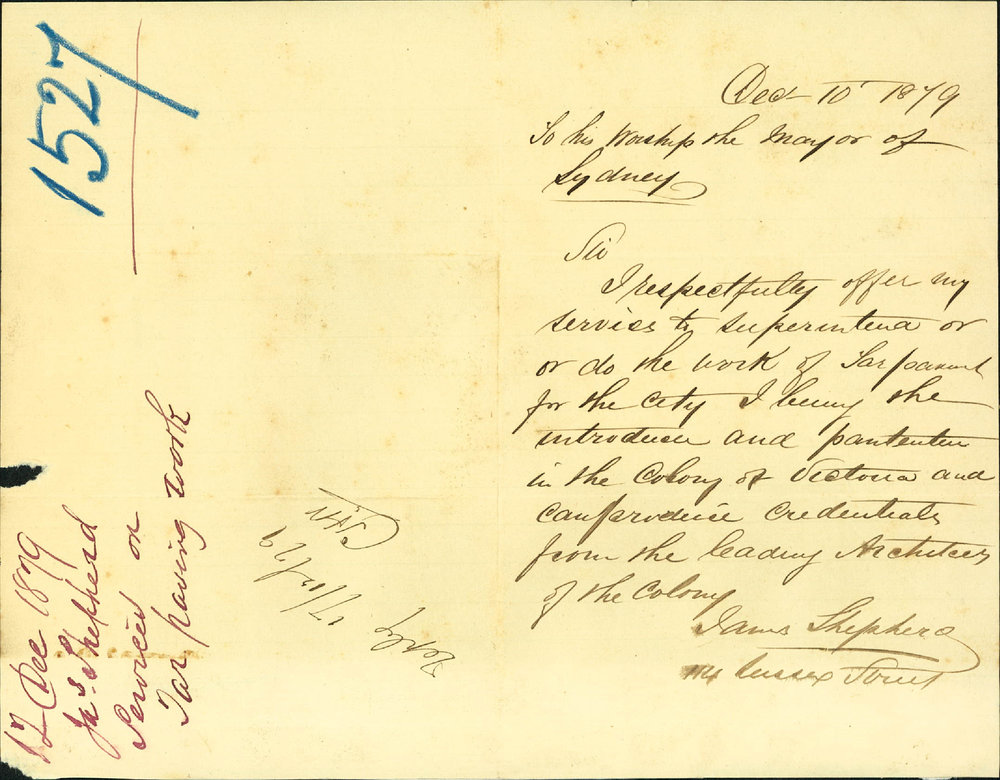 1527
12 Dec 1879
Jas. Shepherd
Services on
Tar paving work
Reply 17/12/79
Dec 10 1879
To his Worship the Mayor of
Sydney
Sir
I respectfully offer my
servics to superintend or
or do the work of Tarpavment
for the City I being the
introducer and pantentee
in the Colony of Victoria and
can produce Credentials
from the leading Architects
of the Colony
James Shepherd
Sussex Street